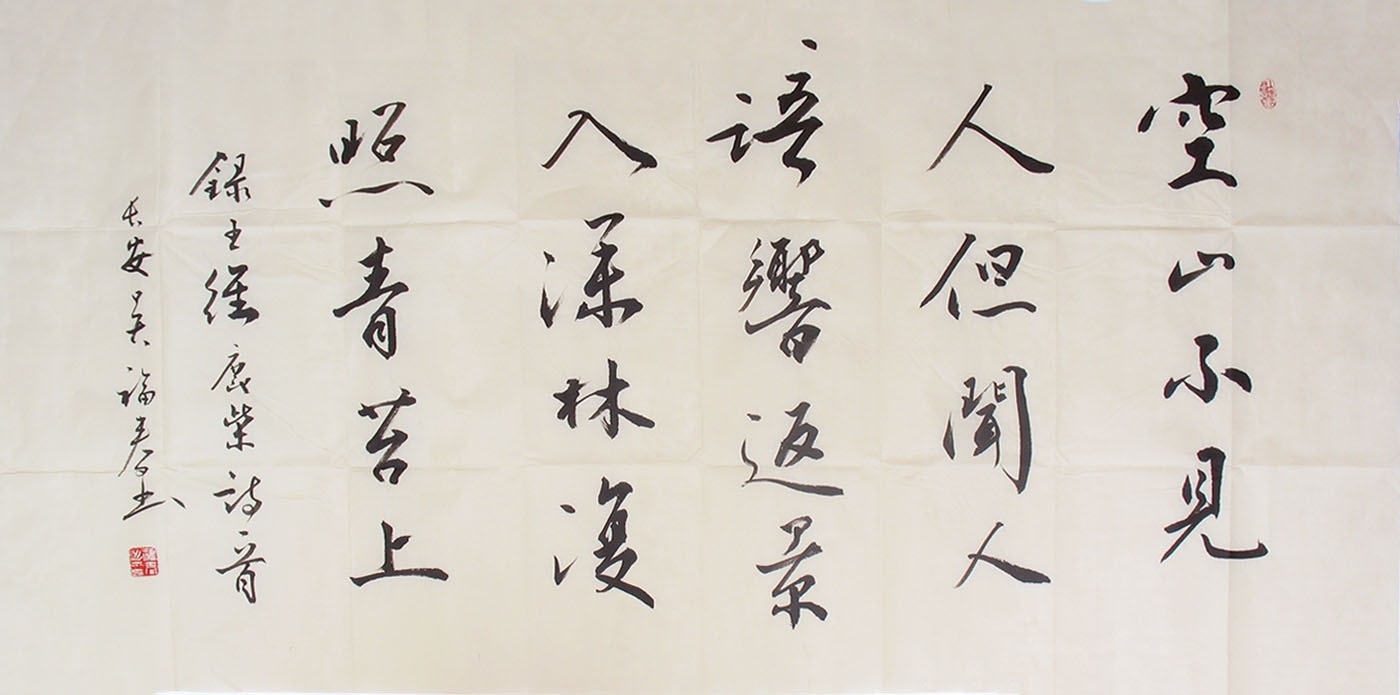 空山不見
人但聞人
語響返景
入深林復
照青苔上
錄王維鹿柴詩一首
長安吳福春書